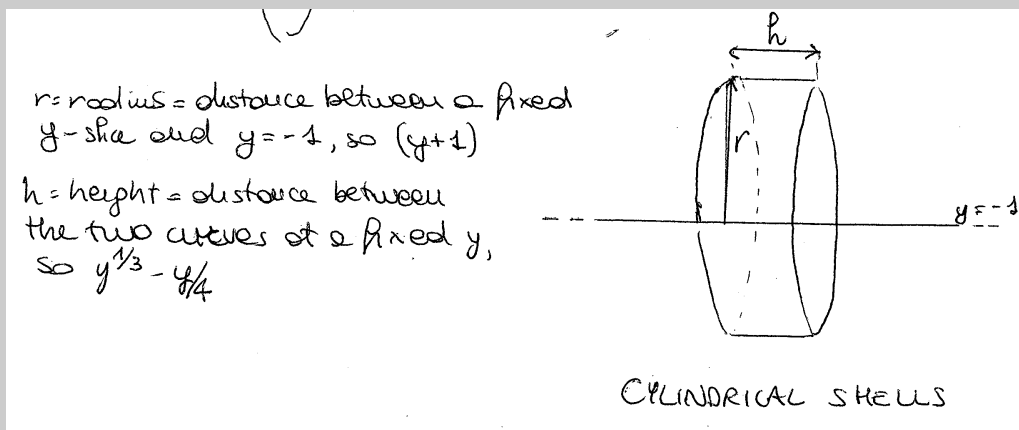 r = radius = distance between a fixed
y-slice and y=-1, so (y+1)
h = height = distance between
the two curves at a fixed y,
so y^1/3 - y/4
h
r
y=-1
CYLINDRICAL SHELLS